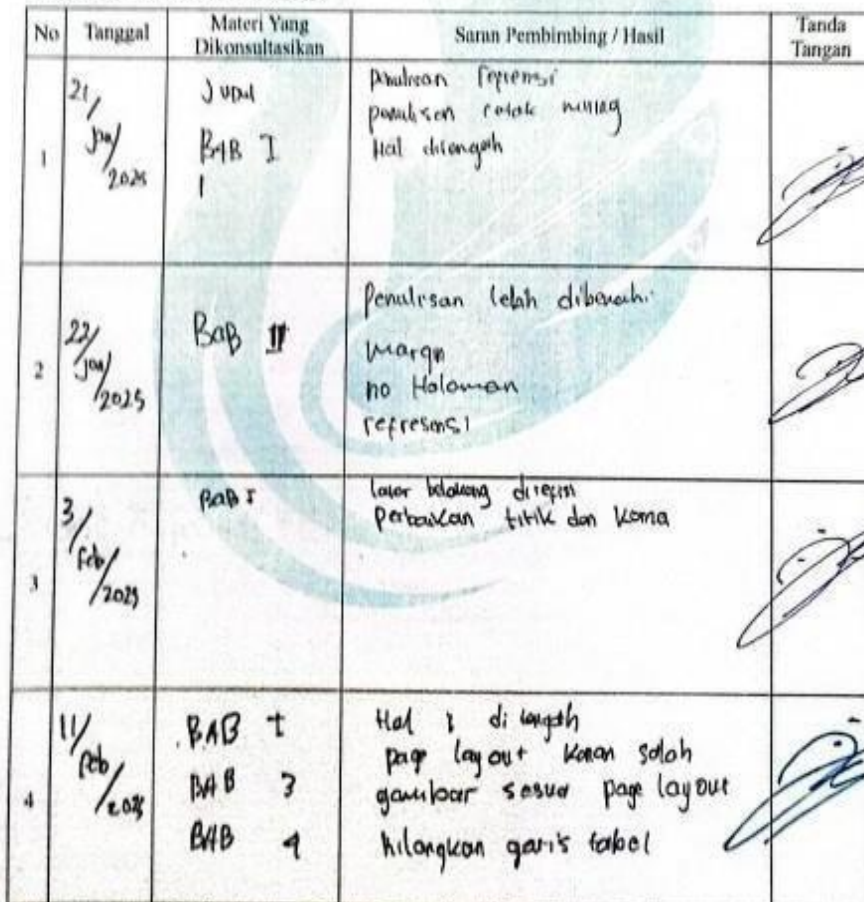 No Tanggal Materi Yang Dikonsultasikan Saran Pembimbing / Hasil Tanda Tangan
1
21/Jan/2025
Judul
BAB I
penulisan
penulisan cetak miring
Hal ditengah
2
22/Jan/2025
BaB II
Penulisan telah dibenahi
Margin
no Halaman
refresensi
3
3/Feb/2025
BAB I
latar belakang direvisi
perbaikan titik dan koma
4
11/Feb/2025
BAB I
BAB 3
BAB 4
Hal 1 di tengah
page layout Koran salah
gambar sesuai page layout
hilangkan garis tabel